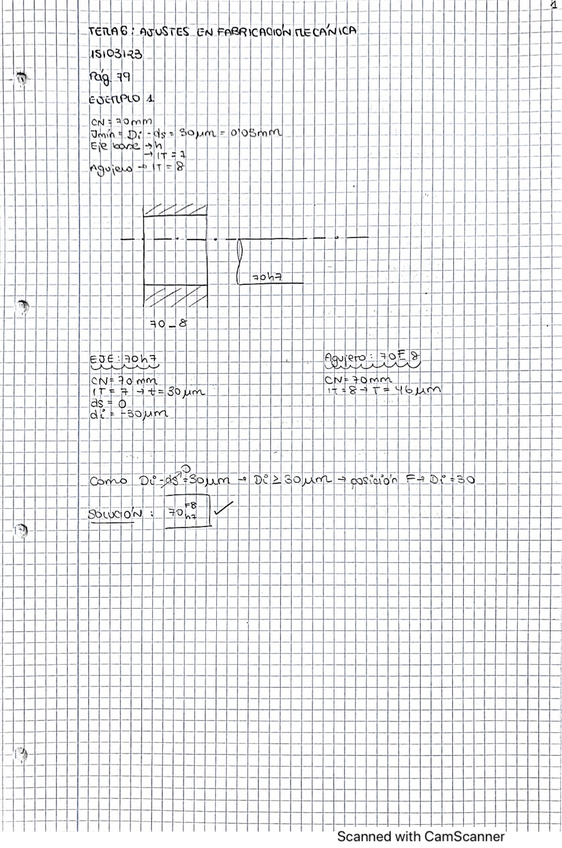 1
TEMA 6: AJUSTES EN FABRICACIÓN MECÁNICA
15/03/23
Pág. 79
EJEMPLO 1
CN = 70mm
Jmín = Di - ds = 30 μm = 0'03mm
Eje base → h
→ IT = 7
Agujero → IT = 8
70h7
70 _ 8
EJE: 70h7
CN = 70mm
IT = 7 → t = 30 μm
ds = 0
di = -30 μm
Agujero: 70F8
CN = 70mm
IT = 8 → T = 46 μm
0
Como Di - ds = 30 μm → Di ≥ 30 μm → posición F → Di = 30
SOLUCIÓN: 70 F8 h7 ✓
Scanned with CamScanner